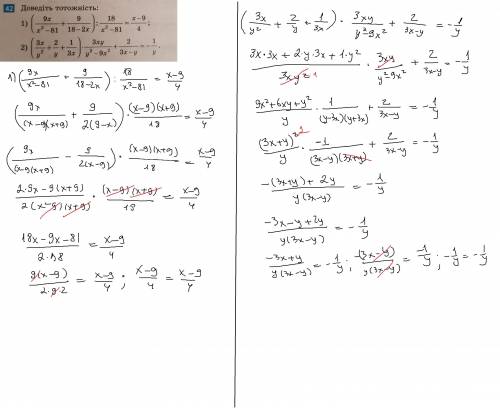 42 Доведіть тотожність:
1) (9x/(x²−81) + 9/(18−2x)) : 18/(x²−81) = (x−9)/4;
2) (3x/y² + 2/y + 1/(3x)) · 3xy/(y²−9x²) + 2/(3x−y) = −1/y.
1) (9x/(x²−81) + 9/(18−2x)) : 18/(x²−81) = (x−9)/4
(9x/((x−9)(x+9)) + 9/(2(9−x))) · (x−9)(x+9)/18 = (x−9)/4
(9x/((x−9)(x+9)) − 9/(2(x−9))) · (x−9)(x+9)/18 = (x−9)/4
(2·9x−9(x+9))/(2(x−9)(x+9)) · (x−9)(x+9)/18 = (x−9)/4
(18x−9x−81)/(2·18) = (x−9)/4
9(x−9)/(2·9·2) = (x−9)/4 ; (x−9)/4 = (x−9)/4
(3x/y² + 2/y + 1/(3x)) · 3xy/(y²−9x²) + 2/(3x−y) = −1/y
(3x·3x+2y·3x+1·y²)/(3xy²) · 3xy/(y²−9x²) + 2/(3x−y) = −1/y
(9x²+6xy+y²)/y · 1/((y−3x)(y+3x)) + 2/(3x−y) = −1/y
(3x+y)²/y · −1/((3x−y)(3x+y)) + 2/(3x−y) = −1/y
(−(3x+y)+2y)/(y(3x−y)) = −1/y
(−3x−y+2y)/(y(3x−y)) = −1/y
(−3x+y)/(y(3x−y)) = −1/y ; −(3x−y)/(y(3x−y)) = −1/y ; −1/y = −1/y